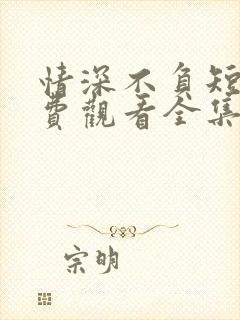 情深不負短
費觀看全集
宗明